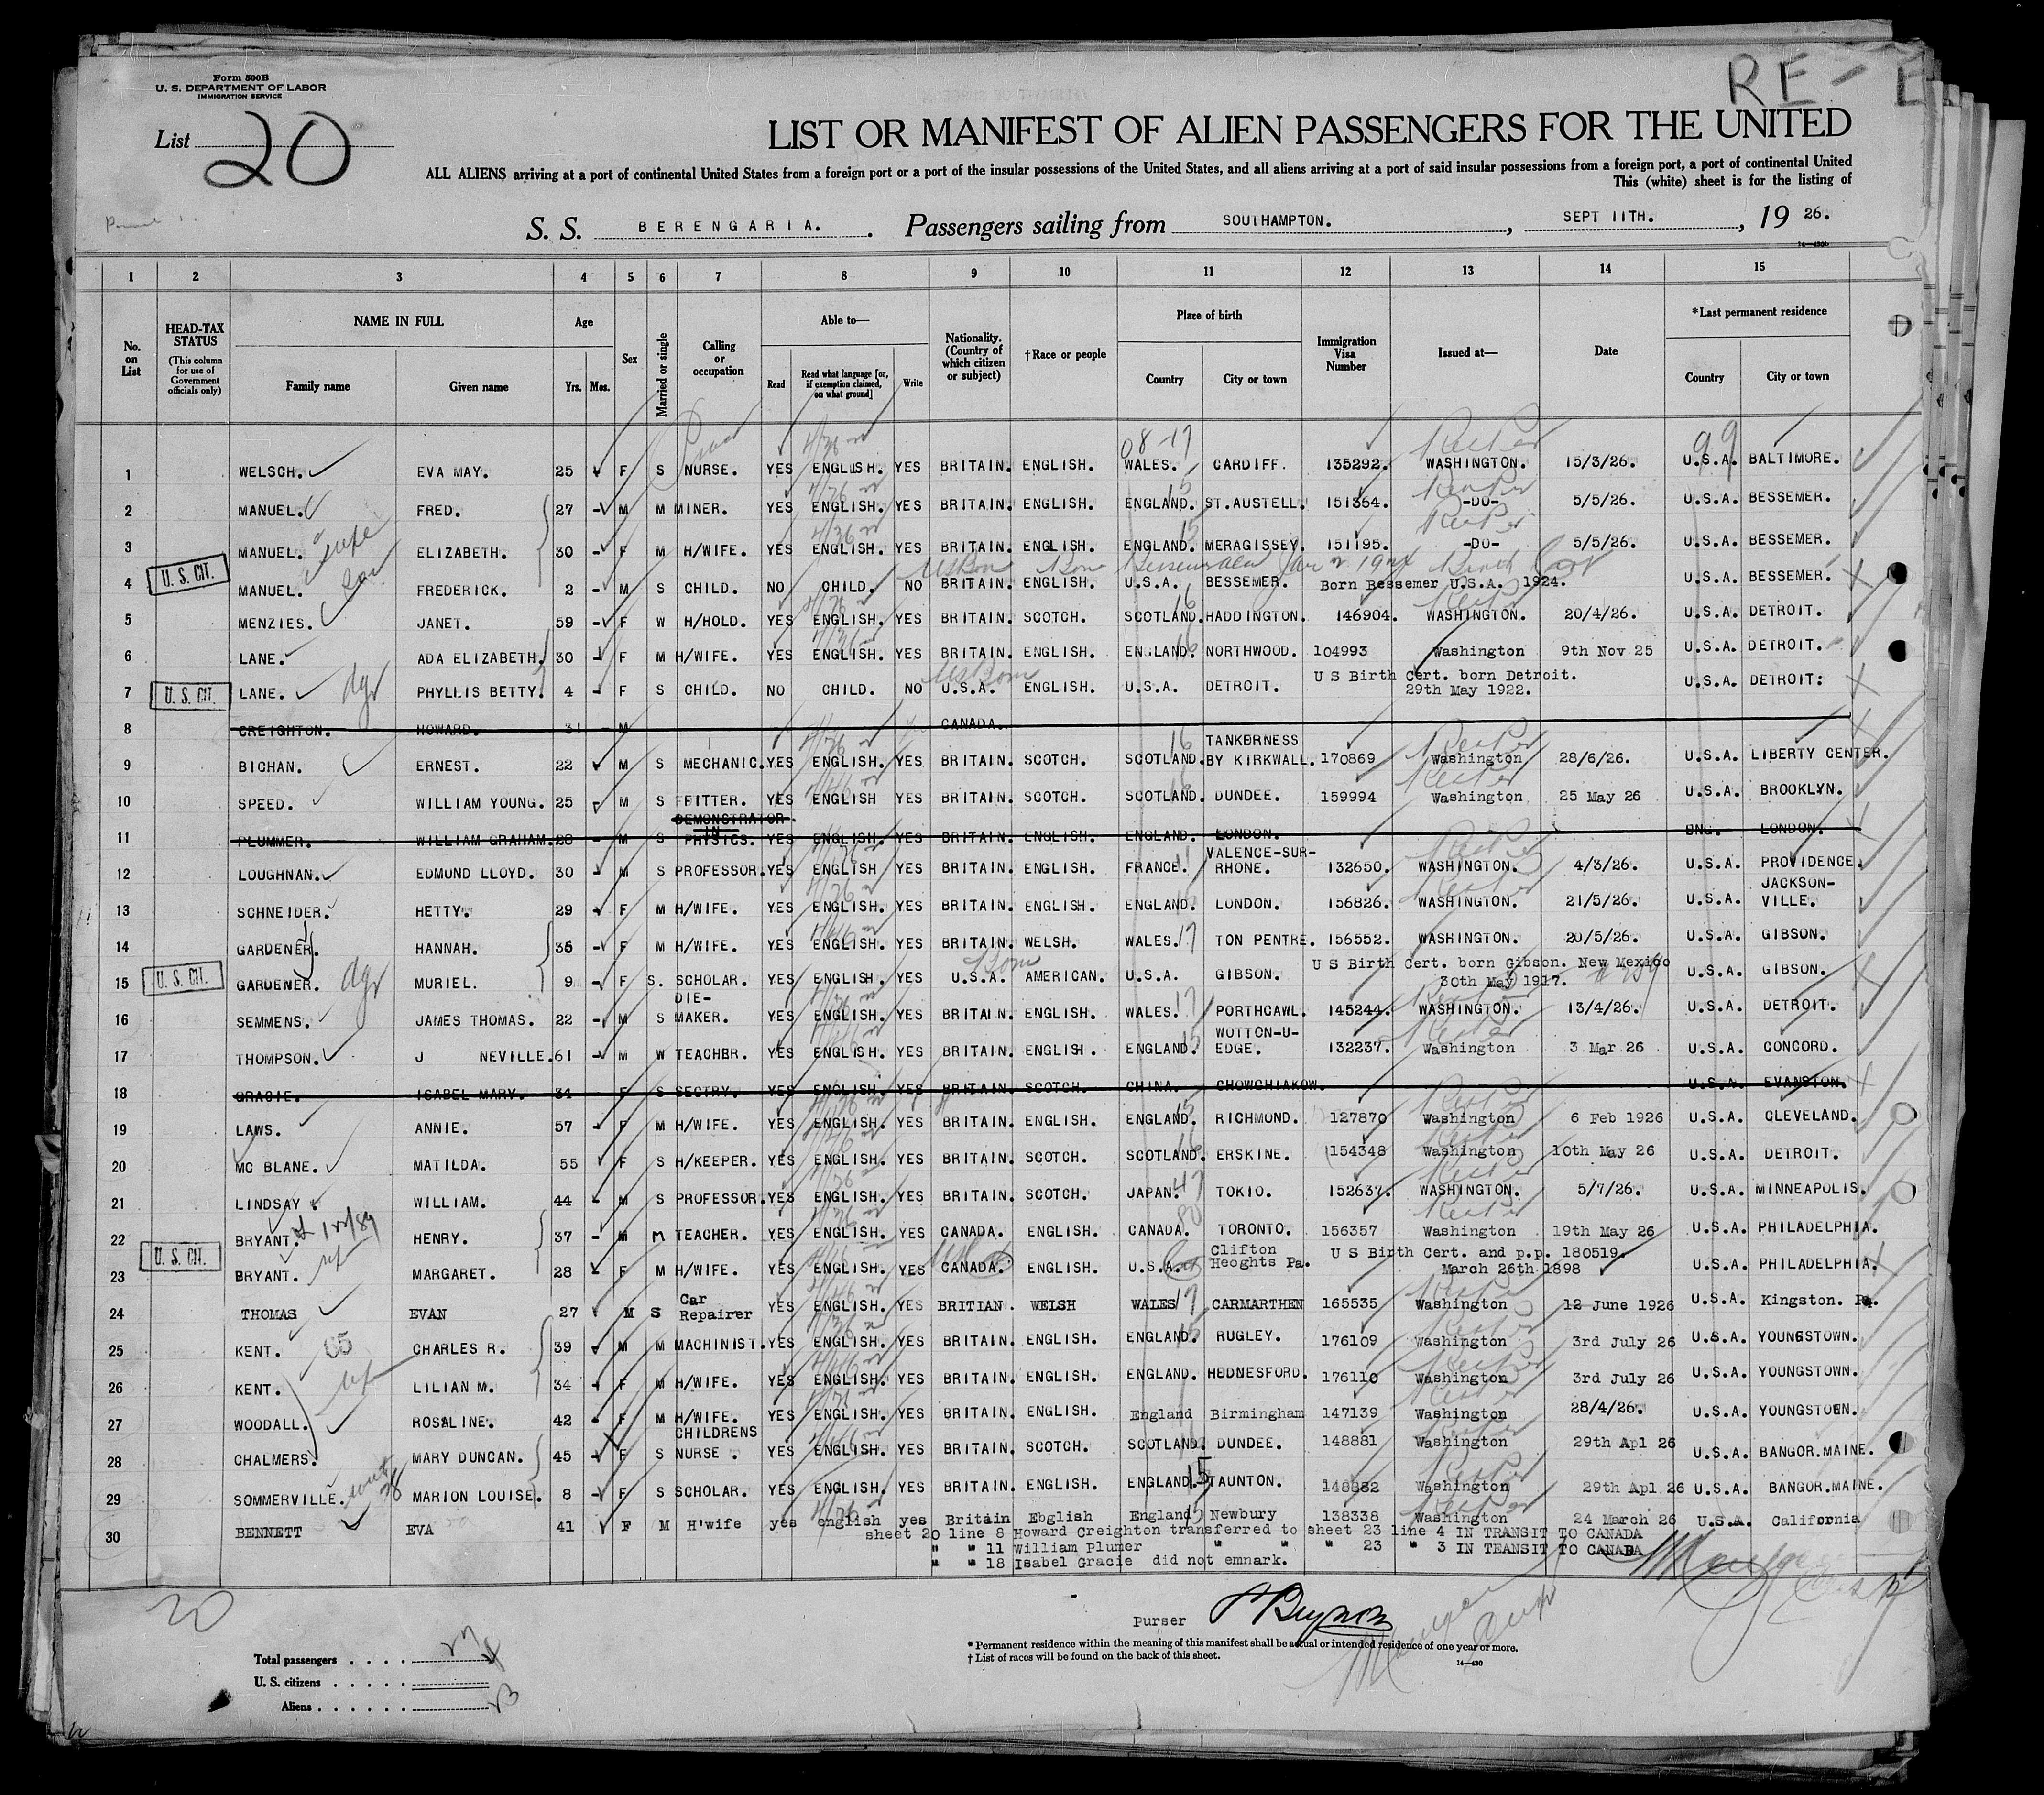 Form 500B
U. S. DEPARTMENT OF LABOR
IMMIGRATION SERVICE
RE - E
List 20
LIST OR MANIFEST OF ALIEN PASSENGERS FOR THE UNITED
ALL ALIENS arriving at a port of continental United States from a foreign port or a port of the insular possessions of the United States, and all aliens arriving at a port of said insular possessions from a foreign port, a port of continental United
This (white) sheet is for the listing of
S. S. BERENGARIA. Passengers sailing from SOUTHAMPTON. , SEPT 11TH. , 19 26.
1 2 3 4 5 6 7 8 9 10 11 12 13 14 15
No. on List HEAD-TAX STATUS (This column for use of Government officials only) NAME IN FULL Family name Given name Age Yrs. Mos. Sex Married or single Calling or occupation Able to— Read Read what language [or, if exemption claimed, on what ground] Write Nationality. (Country of which citizen or subject) †Race or people Place of birth Country City or town Immigration Visa Number Issued at— Date *Last permanent residence Country City or town
08-17 99
1 WELSCH. EVA MAY. 25 F S NURSE. YES ENGLISH. YES BRITAIN. ENGLISH. WALES. CARDIFF. 135292. WASHINGTON. 15/3/26. U.S.A. BALTIMORE.
2 MANUEL. FRED. 27 M M MINER. YES ENGLISH. YES BRITAIN. ENGLISH. ENGLAND. ST.AUSTELL. 151364. -DO- 5/5/26. U.S.A. BESSEMER.
3 MANUEL. wife ELIZABETH. 30 F M H/WIFE. YES ENGLISH. YES BRITAIN. ENGLISH. ENGLAND. MERAGISSEY. 151195. -DO- 5/5/26. U.S.A. BESSEMER.
U. S. CIT.
4 MANUEL. son FREDERICK. 2 M S CHILD. NO CHILD. NO BRITAIN. ENGLISH. U.S.A. BESSEMER. Born Bessemer U.S.A. 1924. U.S.A. BESSEMER.
5 MENZIES. JANET. 59 F W H/HOLD. YES ENGLISH. YES BRITAIN. SCOTCH. SCOTLAND. HADDINGTON. 146904. WASHINGTON. 20/4/26. U.S.A. DETROIT.
6 LANE. ADA ELIZABETH. 30 F M H/WIFE. YES ENGLISH. YES BRITAIN. ENGLISH. ENGLAND NORTHWOOD. 104993 Washington 9th Nov 25 U.S.A. DETROIT.
7 U. S. CIT. LANE. PHYLLIS BETTY. 4 F S CHILD. NO CHILD. NO U.S.A. ENGLISH. U.S.A. DETROIT. U S Birth Cert. born Detroit. 29th May 1922. U.S.A. DETROIT:
8 CREIGHTON. HOWARD. 31 M CANADA.
9 BICHAN. ERNEST. 22 M S MECHANIC. YES ENGLISH. YES BRITAIN. SCOTCH. SCOTLAND. TANKERNESS BY KIRKWALL. 170869 Washington 28/6/26. U.S.A. LIBERTY CENTER.
10 SPEED. WILLIAM YOUNG. 25 M S FFITTER. YES ENGLISH YES BRITAIN. SCOTCH. SCOTLAND. DUNDEE. 159994 Washington 25 May 26 U.S.A. BROOKLYN.
11 PLUMMER. WILLIAM GRAHAM. 28 M S DEMONSTRATOR IN PHYSICS. YES ENGLISH. YES BRITAIN. ENGLISH. ENGLAND. LONDON. ENG. LONDON.
12 LOUGHNAN. EDMUND LLOYD. 30 M S PROFESSOR. YES ENGLISH YES BRITAIN. ENGLISH. FRANCE. VALENCE-SUR-RHONE. 132650. WASHINGTON. 4/3/26. U.S.A. PROVIDENCE.
13 SCHNEIDER. HETTY. 29 F M H/WIFE. YES ENGLISH. YES BRITAIN. ENGLISH. ENGLAND. LONDON. 156826. WASHINGTON. 21/5/26. U.S.A. JACKSON-VILLE.
14 GARDENER. HANNAH. 36 F M H/WIFE. YES ENGLISH. YES BRITAIN. WELSH. WALES. 17 TON PENTRE. 156552. WASHINGTON. 20/5/26. U.S.A. GIBSON.
15 U. S. CIT. GARDENER. MURIEL. 9 F S. SCHOLAR. YES ENGLISH. YES U.S.A. AMERICAN. U.S.A. GIBSON. U S Birth Cert. born Gibson. New Mexico 30th May 1917. U.S.A. GIBSON.
16 SEMMENS. JAMES THOMAS. 22 M S DIE-MAKER. YES ENGLISH. YES BRITAIN. ENGLISH. WALES. 17 PORTHCAWL. 145244. WASHINGTON. 13/4/26. U.S.A. DETROIT.
17 THOMPSON. J NEVILLE. 61 M W TEACHER. YES ENGLISH. YES BRITAIN. ENGLISH. ENGLAND. WOTTON-U-EDGE. 132237. Washington 3 Mar 26 U.S.A. CONCORD.
18 GRACIE. ISABEL MARY. 34 F S SECTRY. YES ENGLISH. YES BRITAIN. SCOTCH. CHINA. CHOWCHIAKOW. U.S.A. EVANSTON.
19 LAWS. ANNIE. 57 F M H/WIFE. YES ENGLISH. YES BRITAIN. ENGLISH. ENGLAND. RICHMOND. 127870 Washington 6 Feb 1926 U.S.A. CLEVELAND.
20 MC BLANE. MATILDA. 55 F S H/KEEPER. YES ENGLISH. YES BRITAIN. SCOTCH. SCOTLAND. ERSKINE. 154348 Washington 10th May 26 U.S.A. DETROIT.
21 LINDSAY WILLIAM. 44 M S PROFESSOR. YES ENGLISH. YES BRITAIN. SCOTCH. JAPAN. 47 TOKIO. 152637. WASHINGTON. 5/7/26. U.S.A. MINNEAPOLIS.
22 BRYANT. HENRY. 37 M M TEACHER. YES ENGLISH. YES CANADA. ENGLISH. CANADA. TORONTO. 156357 Washington 19th May 26 U.S.A. PHILADELPHIA.
23 U. S. CIT. BRYANT. MARGARET. 28 F M H/WIFE. YES ENGLISH. YES CANADA. ENGLISH. U.S.A. Clifton Heoghts Pa. U S Birth Cert. and p.p. 180519. March 26th 1898 U.S.A. PHILADELPHIA.
24 THOMAS EVAN 27 M S Car Repairer YES ENGLISH. YES BRITIAN. WELSH WALES 17 CARMARTHEN 165535 Washington 12 June 1926 U.S.A. Kingston. Pa.
25 KENT. CHARLES R. 39 M M MACHINIST. YES ENGLISH. YES BRITAIN. ENGLISH. ENGLAND. RUGLEY. 176109 Washington 3rd July 26 U.S.A. YOUNGSTOWN.
26 KENT. LILIAN M. 34 F M H/WIFE. YES ENGLISH. YES BRITAIN. ENGLISH. ENGLAND. HEDNESFORD. 176110 Washington 3rd July 26 U.S.A. YOUNGSTOWN.
27 WOODALL. ROSALINE. 42 F M H/WIFE. YES ENGLISH. YES BRITAIN. ENGLISH. England Birmingham 147139 Washington 28/4/26. U.S.A. YOUNGSTOWN.
28 CHALMERS. MARY DUNCAN. 45 F S CHILDRENS NURSE . YES ENGLISH. YES BRITAIN. SCOTCH. SCOTLAND. DUNDEE. 148881 Washington 29th Apl 26 U.S.A. BANGOR.MAINE.
29 SOMMERVILLE. MARION LOUISE. 8 F S SCHOLAR. YES ENGLISH. YES BRITAIN. ENGLISH. ENGLAND. 15 TAUNTON. 148882 Washington 29th Apl 26 U.S.A. BANGOR.MAINE.
30 BENNETT EVA 41 F M H'wife yes english yes Britain Ebglish England Newbury 138338 Washington 24 March 26 U.S.A. California
sheet 20 line 8 Howard Creighton transferred to sheet 23 line 4 IN TRANSIT TO CANADA
" " 11 William Plumer " " 23 " 3 IN TRANSIT TO CANADA
" " 18 Isabel Gracie did not emnark.
20
Purser
* Permanent residence within the meaning of this manifest shall be actual or intended residence of one year or more.
† List of races will be found on the back of this sheet.
14—430
Total passengers . . . .
U. S. citizens . . . . .
Aliens . . . . . .